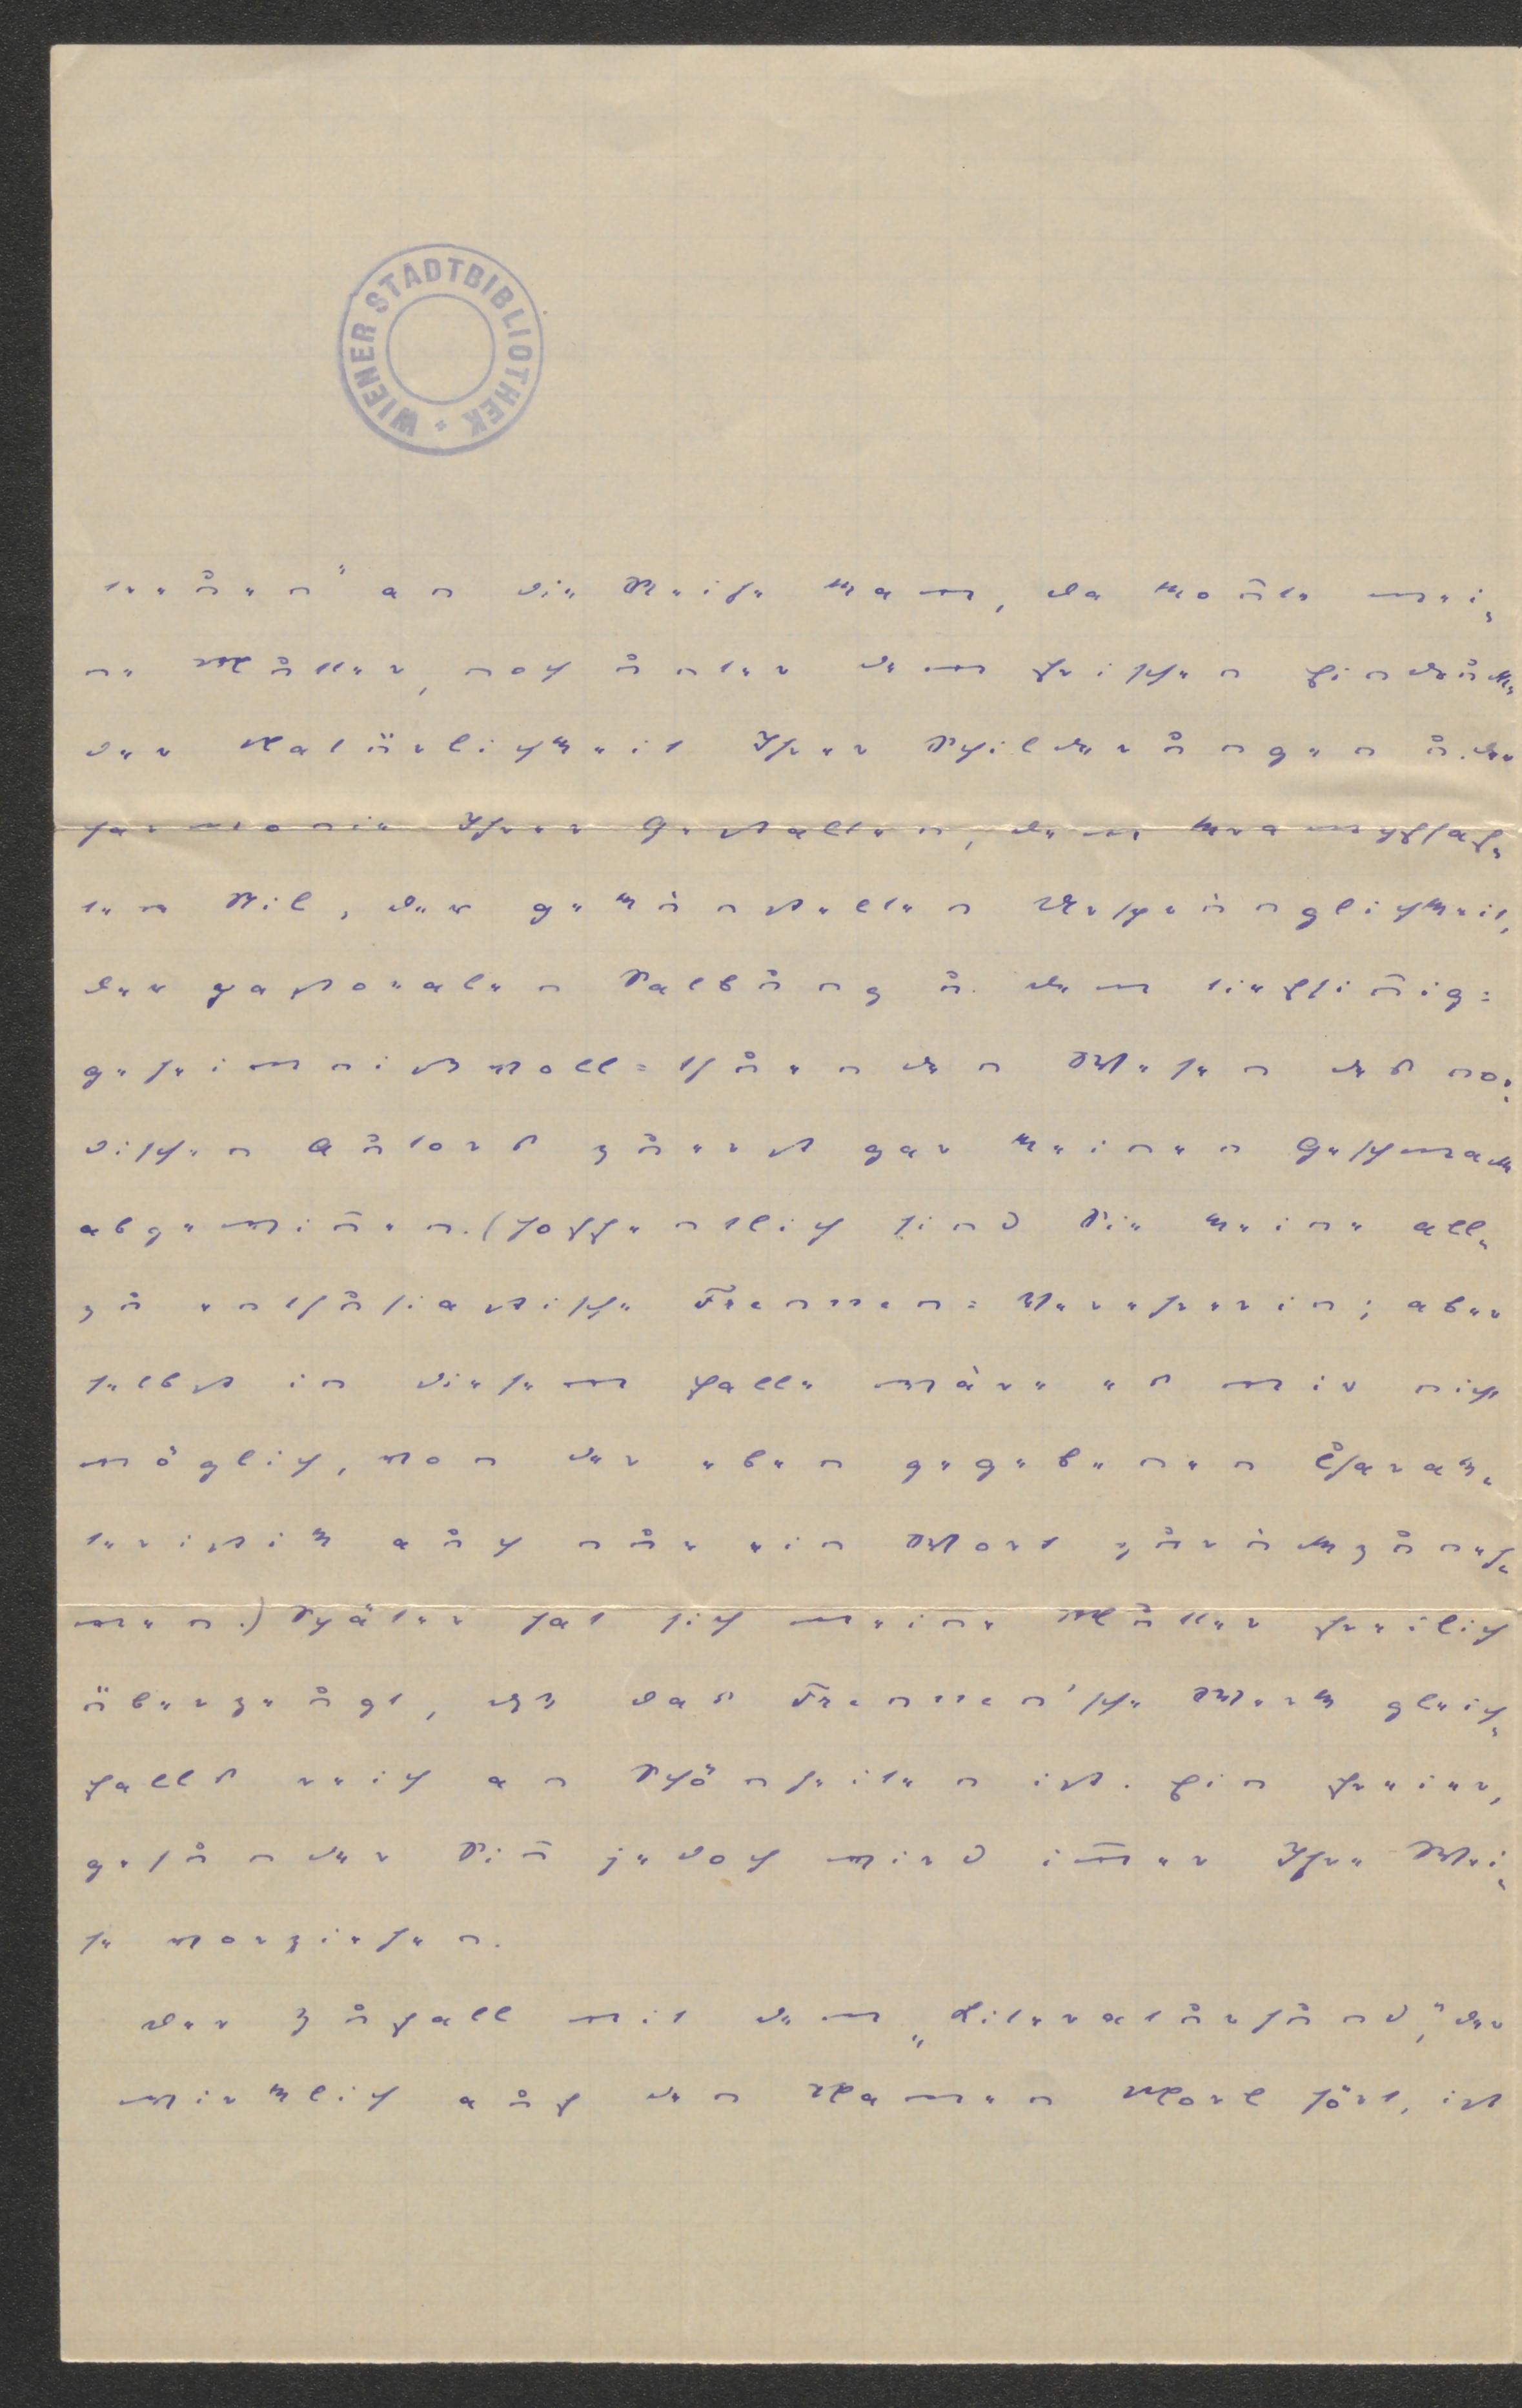 WIENER STADTBIBLIOTHEK
treuen" an die Reihe kam, da konnte mei-
ne Mutter, noch unter dem frischen Eindruck
der Natürlichkeit Ihrer Schilderungen u. der
Harmonie Ihrer Gestalten, dem krampfhaf-
ten Stil, der gekünstelten Ursprünglichkeit,
der pastoralen Salbung u. dem tiefsinnig=
geheimnisvoll=thuenden Wesen des nor-
dischen Autors zuerst gar keinen Geschmack
abgewinnen. (Hoffentlich sind Sie keine all-
zu enthusiastische Frenssen=Verehrerin; aber
selbst in diesem Falle wäre es mir nicht
möglich, von der eben gegebenen Charak-
teristik auch nur ein Wort zurückzuneh-
men.) Später hat sich meine Mutter freilich
überzeugt, daß das Frenssen'sche Werk gleich-
falls reich an Schönheiten ist. Ein freier,
gesunder Sinn jedoch wird immer Ihre Wei-
se vorziehen.
Der Zufall mit dem „Literaturhund", der
wirklich auf den Namen Morl hört, ist